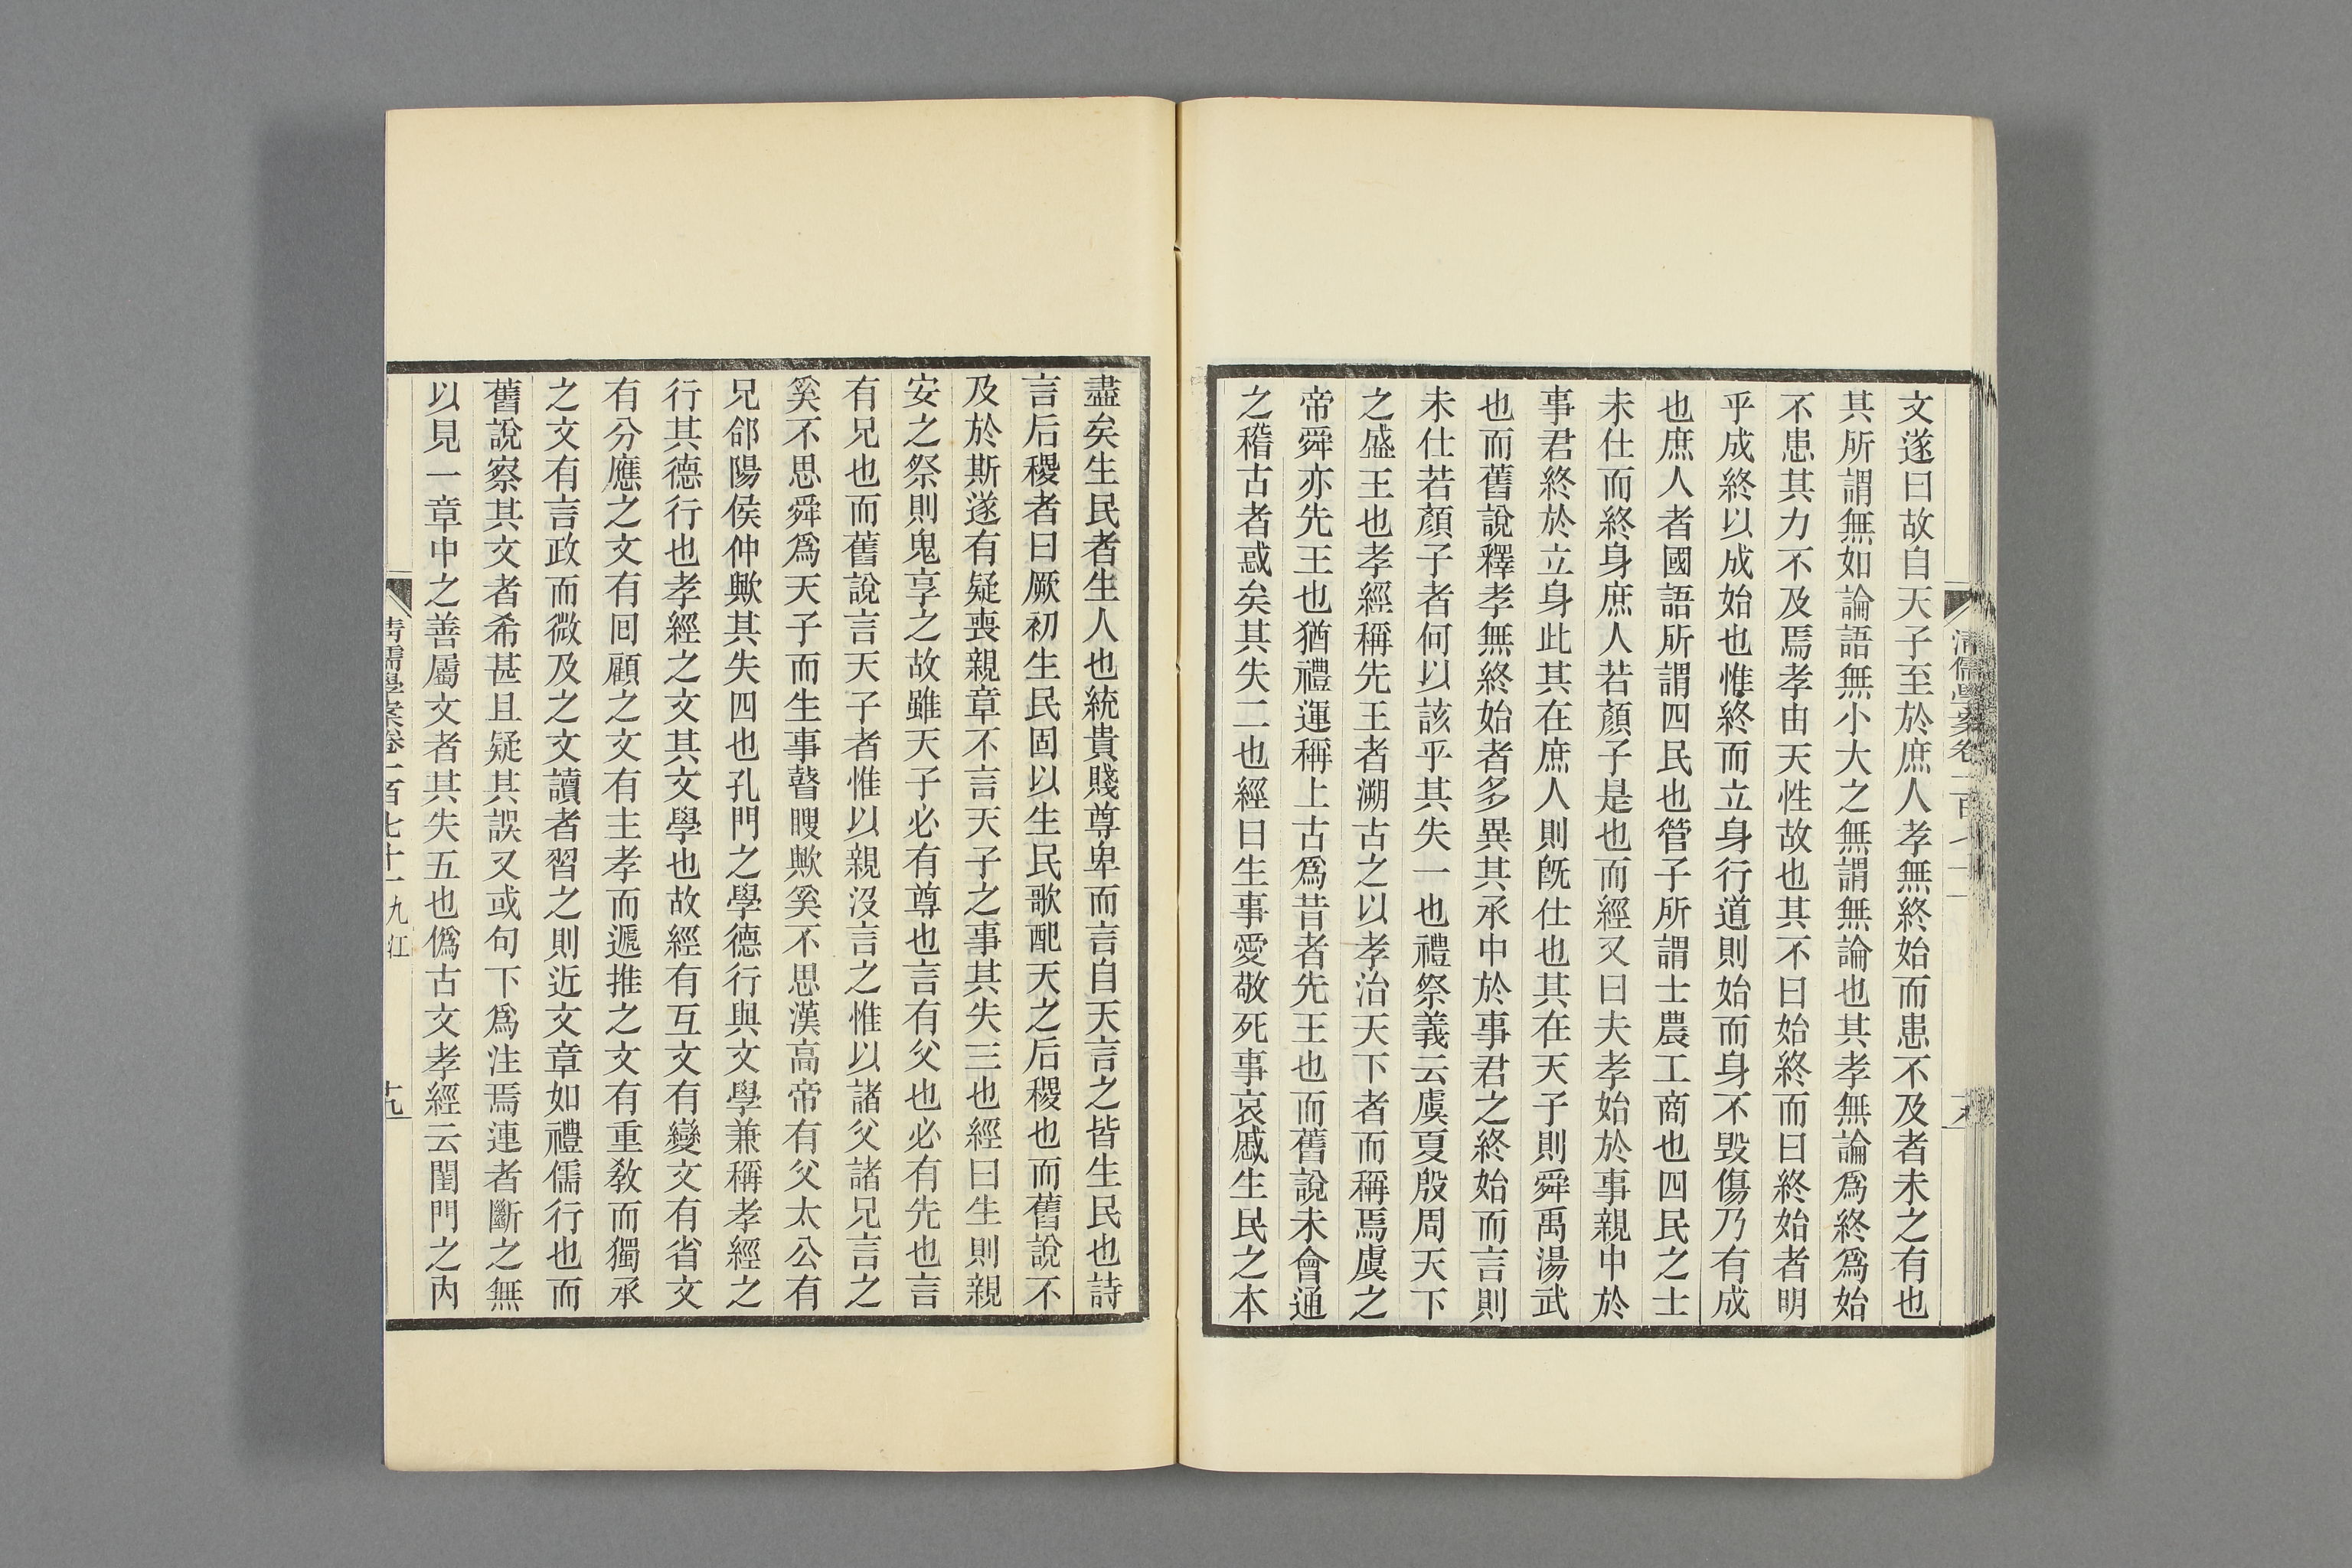 文遂曰故自天子至於庶人孝無終始而患不及者未之有也
其所謂無如論語無小大之無謂無論也其孝無論爲終爲始
不患其力不及焉孝由天性故也其不曰始終而曰終始者明
乎成終以成始也惟終而立身行道則始而身不毀傷乃有成
也庶人者國語所謂四民也管子所謂士農工商也四民之士
未仕而終身庶人若顏子是也而經又曰夫孝始於事親中於
事君終於立身此其在庶人則旣仕也其在天子則舜禹湯武
也而舊說釋孝無終始者多異其承中於事君之終始而言則
未仕若顏子者何以該乎其失一也禮祭義云虞夏殷周天下
之盛王也孝經稱先王者溯古之以孝治天下者而稱焉虞之
帝舜亦先王也猶禮運稱上古爲昔者先王也而舊說未會通
之稽古者惑矣其失二也經曰生事愛敬死事哀慼生民之本
盡矣生民者生人也統貴賤尊卑而言自天言之皆生民也詩
言后稷者曰厥初生民固以生民歌配天之后稷也而舊說不
及於斯遂有疑喪親章不言天子之事其失三也經曰生則親
安之祭則鬼享之故雖天子必有尊也言有父也必有先也言
有兄也而舊說言天子者惟以親沒言之惟以諸父諸兄言之
奚不思舜爲天子而生事瞽瞍歟奚不思漢高帝有父太公有
兄郃陽侯仲歟其失四也孔門之學德行與文學兼稱孝經之
行其德行也孝經之文其文學也故經有互文有變文有省文
有分應之文有回顧之文有主孝而遞推之文有重敎而獨承
之文有言政而微及之文讀者習之則近文章如禮儒行也而
舊說察其文者希甚且疑其誤又或句下爲注焉連者斷之無
以見一章中之善屬文者其失五也僞古文孝經云閨門之內
清儒學案卷一百七十一 九江
十九